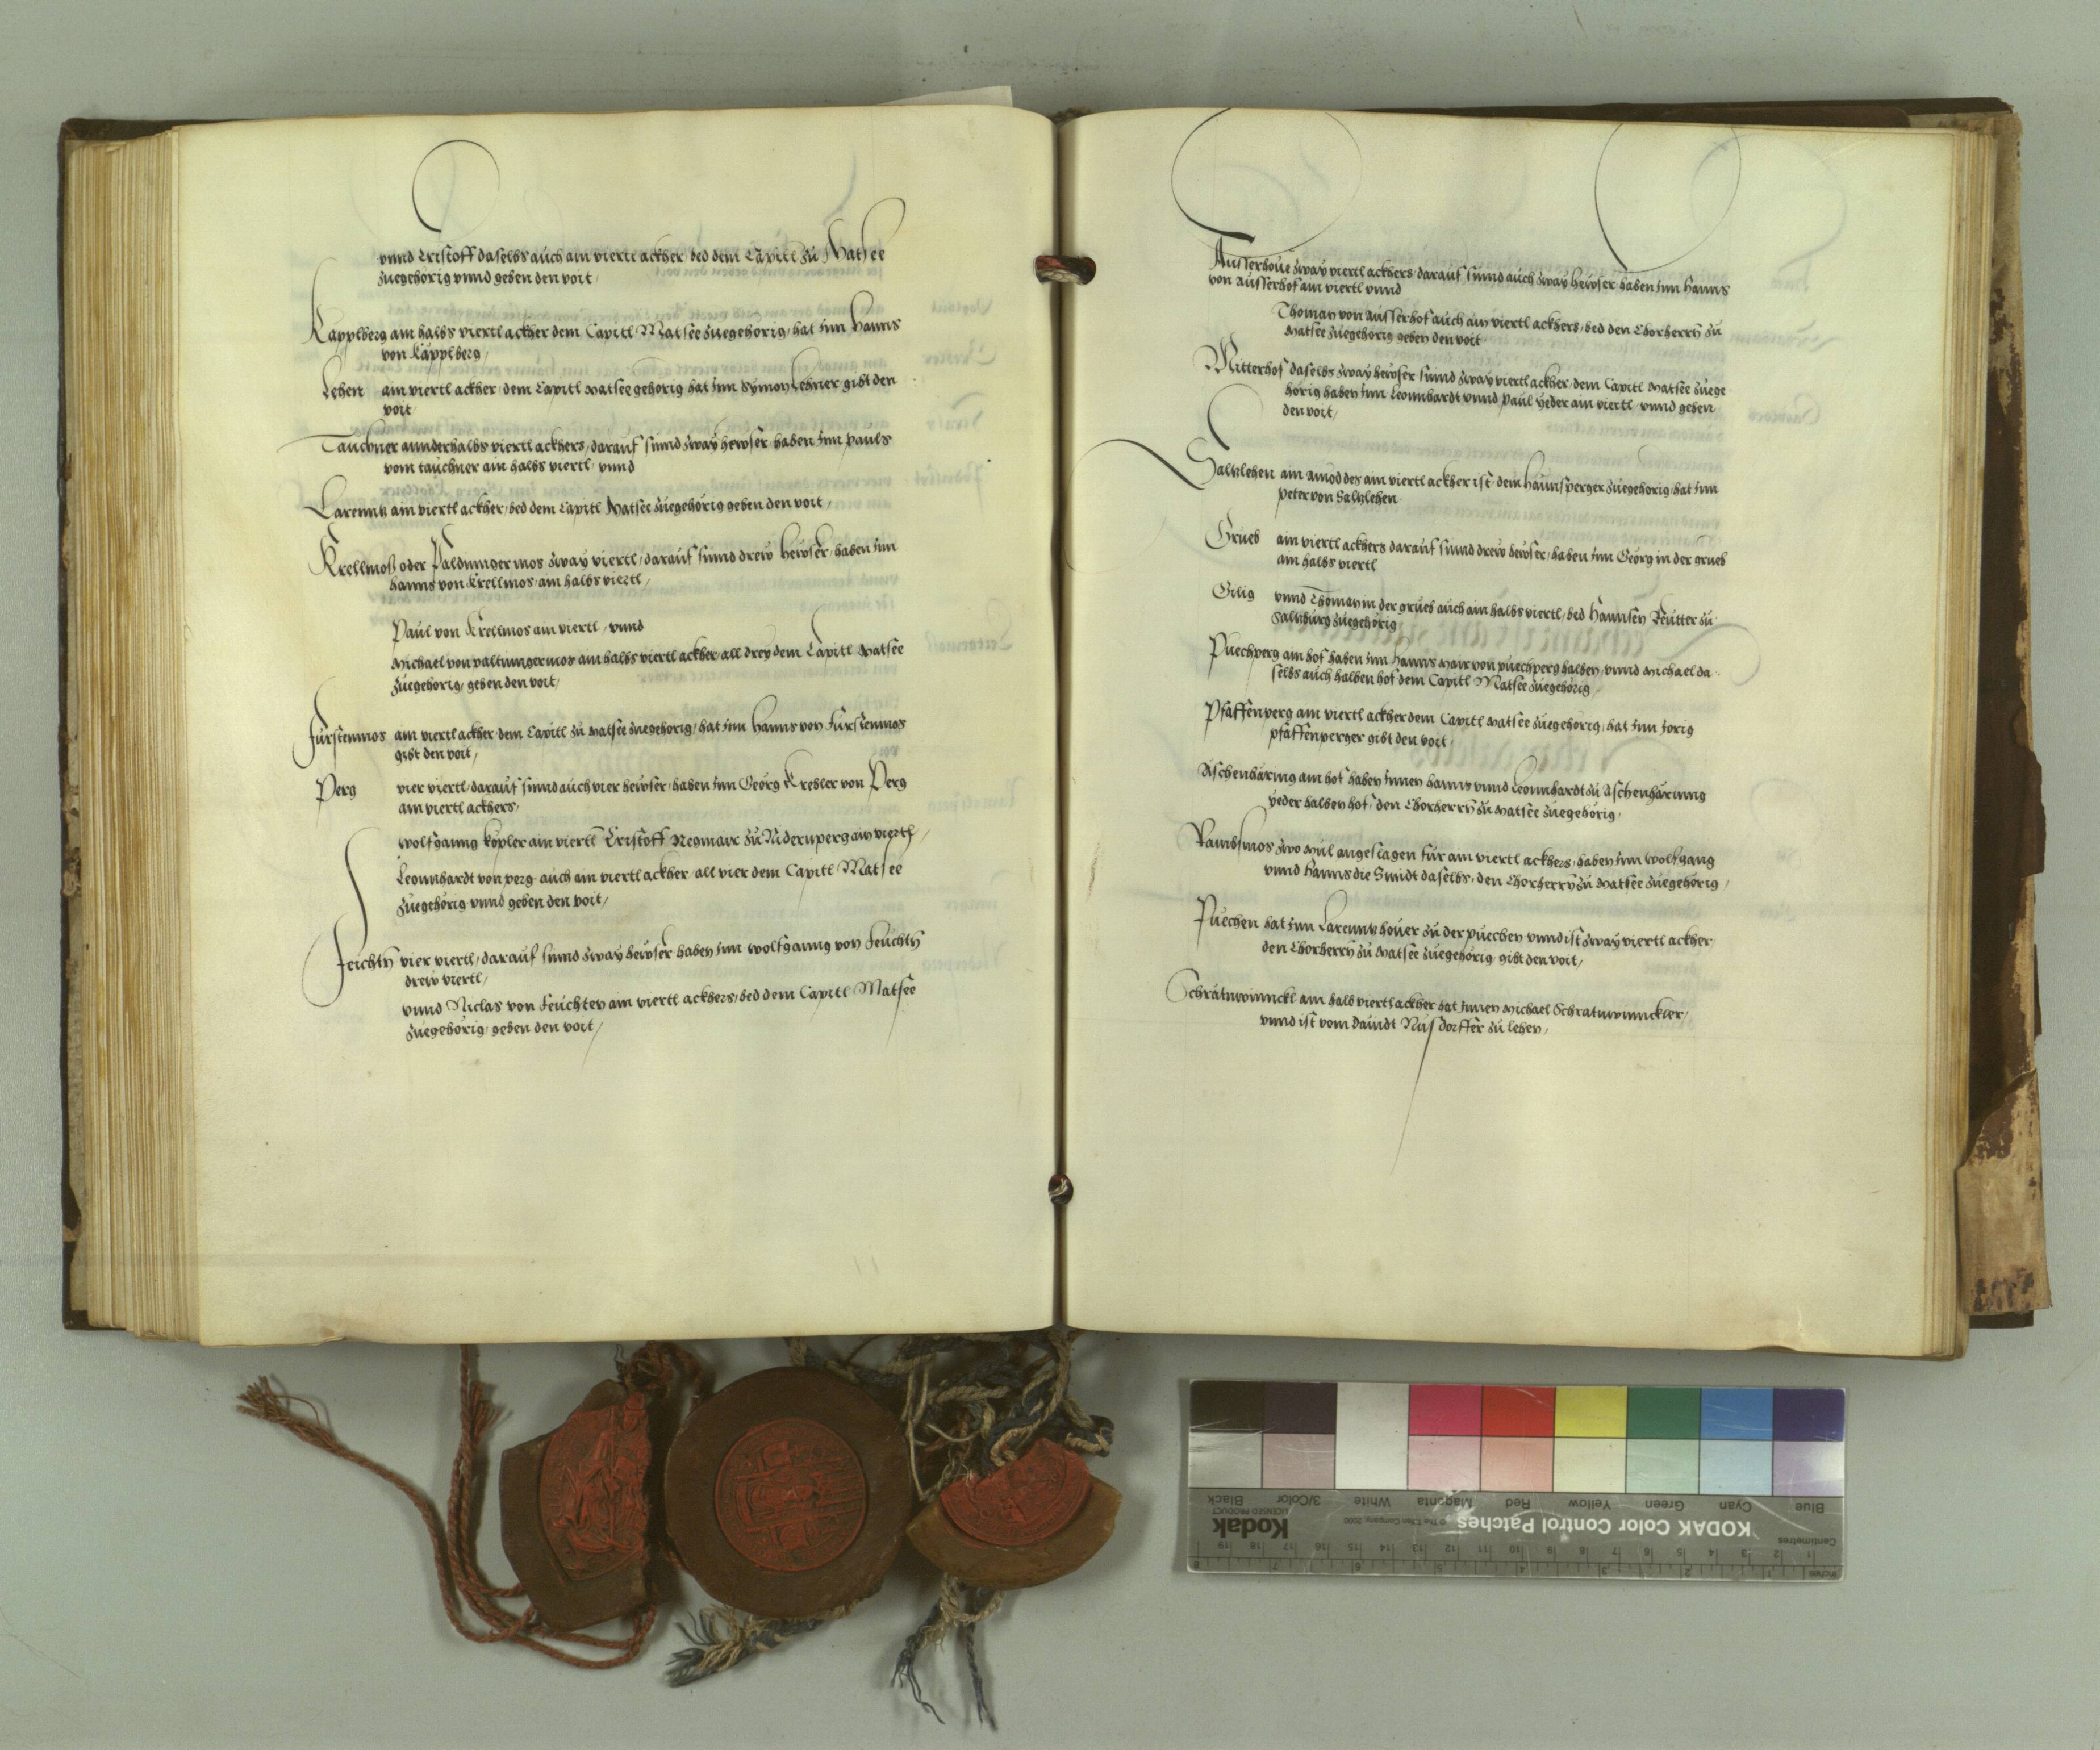 vnnd Cristoff daselbs auch ain viertl ackher bed dem Capitl zu Matsee
zuegehorig vnnd geben den voit
Kapplberg ain halbs viertl ackher dem Capitl Matsee zuegehorig, hat jnn Hanns
von Kapplberg,
Lehen ain viertl ackher, dem Capitl Matsee gehorig hat jnn Symon Lehner gibt den
voit
Tauchner annderhalbs viertl ackhers, darauf sinnd zway hewser haben jnn pauls
vom tauchner ain halbs viertl, vnnd
Larennts ain viertl ackher, bed dem Capitl Matsee zuegehorig geben den voit,
Krellmoß oder Paldinnger mos zway viertl, darauf sinnd drew hewser, haben jnn
hanns von Krellmos, ain halbs viertl,
Paul von Krellmos ain viertl, vnnd
Michael von paltinnger mos ain halbs viertl ackher, all drey dem Capitl Matsee
zuegehorig, geben den voit,
Fürstenmos ain viertl ackher dem Capitl zu Matsee zuegehorig, hat jnn Hanns von Fürstenmos
gibt den voit,
Perg vier viertl, darauf sinnd auch vier hewser, haben jnn Georg Krebler von Perg
ain viertl ackhers,
wolfganng kopler ain viertl Cristoff Negmair zu Nidernperg ain viertl,
Leonnhardt von perg auch ain viertl ackher, all vier dem Capitl Matsee
zuegehorig vnnd geben den voit,
Feichtn vier viertl, darauf sinnd zway hewser haben jnn wolfganng von Feuchtn
drew viertl,
vnnd Niclas von Feuchten ain viertl ackhers, bed dem Capitl Matsee
zuegehorig, geben den voit,
Ausserhoue zway viertl ackhers, darauf sinnd auch zway hewser haben jnn Hanns
von Ausserhof ain viertl vnnd
Thoman von Ausserhof auch ain viertl ackhers, bed den Chorherrn zu
Matsee zuegehorig geben den voit
Mitterhof daselbs zway hewser sinnd zway viertl ackher, dem Capitl Matsee zuege
horig haben jnn Leonnhardt vnnd Paul yeder ain viertl, vnnd geben
den voit,
Saltzlehen ain ainod des ain viertl ackher ist, dem Haunsperger zuegehorig, hat jnn
peter von Saltzlehen
Grueb ain viertl ackhers darauf sinnd drew hewser, haben jnn Georg in der grueb
ain halbs viertl
Gilig vnnd Thoman in der grueb auch ain halbs viertl, bed Hannsen Reutter zu
Saltzburg zuegehorig
Puechperg ain hof haben jnn Hanns Mair von puechperg halben, vnnd Michael da
selbs auch halben hof dem Capitl Matsee zuegehorig,
Pfaffenperg ain viertl ackher dem Capitl Matsee zuegehorig, hat jnn Jorig
pfaffenperger gibt den voit,
Aschenharing ain hof haben jnnen hanns vnnd Leonnhardt zu Aschenharinng
yeder halben hof, den Chorherrn zu Matsee zuegehorig,
Rambsmos zwo Mül angeslagen für ain viertl ackhers, haben jnn wolfgang
vnnd Hanns die Smidt daselbs, den Chorherrn zu Matsee zuegehorig,
Puechen hat jnn Larennts houer zu der puechen vnnd ist zway viertl ackher,
den Chorherrn zu Matsee zuegehorig gibt den voit,
Schratnwinnckl ain halb viertl ackher hat jnnen Michael Schratnwinnckler,
vnnd ist vom Dauidt Nusdorffer zu lehen,
Kodak
LICENSED PRODUCT
KODAK Color Control Patches
© The Tiffen Company, 2000
Blue Cyan Green Yellow Red Magenta White 3/Color Black
Centimetres
Inches
1 2 3 4 5 6 7 8 9 10 11 12 13 14 15 16 17 18 19